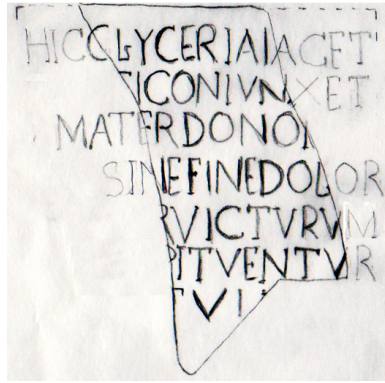 HICCLYCERIAIACET
ICONIVNXET
MATERDONOI
SINEFINEDOLOR
RVICTVRVM
PITVENTVR
VI